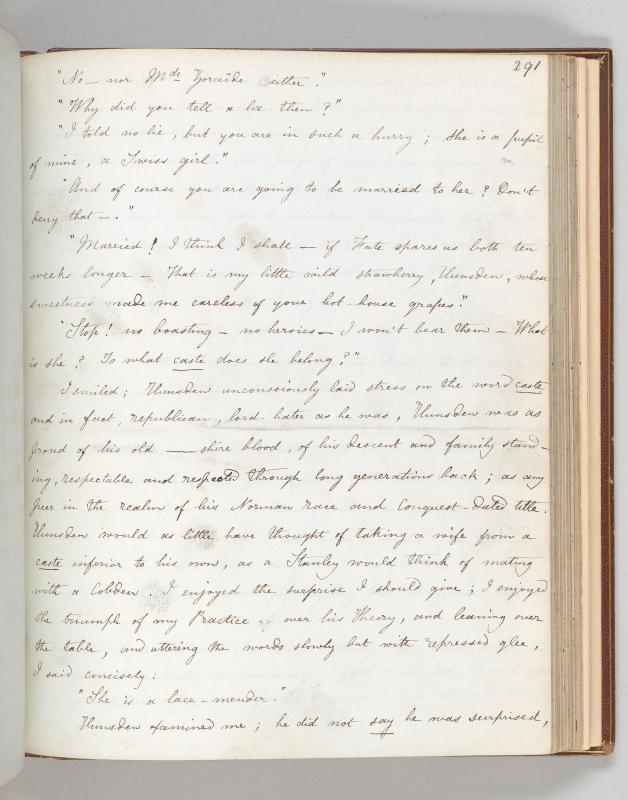 291
"No — nor Mde Zoraïde either."
"Why did you tell a lie then?"
"I told no lie, but you are in such a hurry; she is a pupil
of mine, a Swiss girl."
"And of course you are going to be married to her? Don't
deny that —."
"Married! I think I shall — if Fate spares us both ten
weeks longer — That is my little wild strawberry, Hunsden, whose
sweetness made me careless of your hot-house grapes."
"Stop! no boasting — no heroics — I won't bear them — What
is she? To what caste does she belong?"
I smiled; Hunsden unconsciously laid stress on the word caste
and in fact, republican, lord-hater as he was, Hunsden was as
proud of his old — shire blood, of his descent and family stand-
ing, respectable and respected through long generations back; as any
Peer in the realm of his Norman race and Conquest-dated title.
Hunsden would as little have thought of taking a wife from a
caste inferior to his own, as a Stanley would think of mating
with a Cobden. I enjoyed the surprise I should give; I enjoyed
the triumph of my Practice over his Theory, and leaning over
the table, and uttering the words slowly but with repressed glee,
I said concisely:
"She is a lace-mender."
Hunsden examined me; he did not say he was surprised,